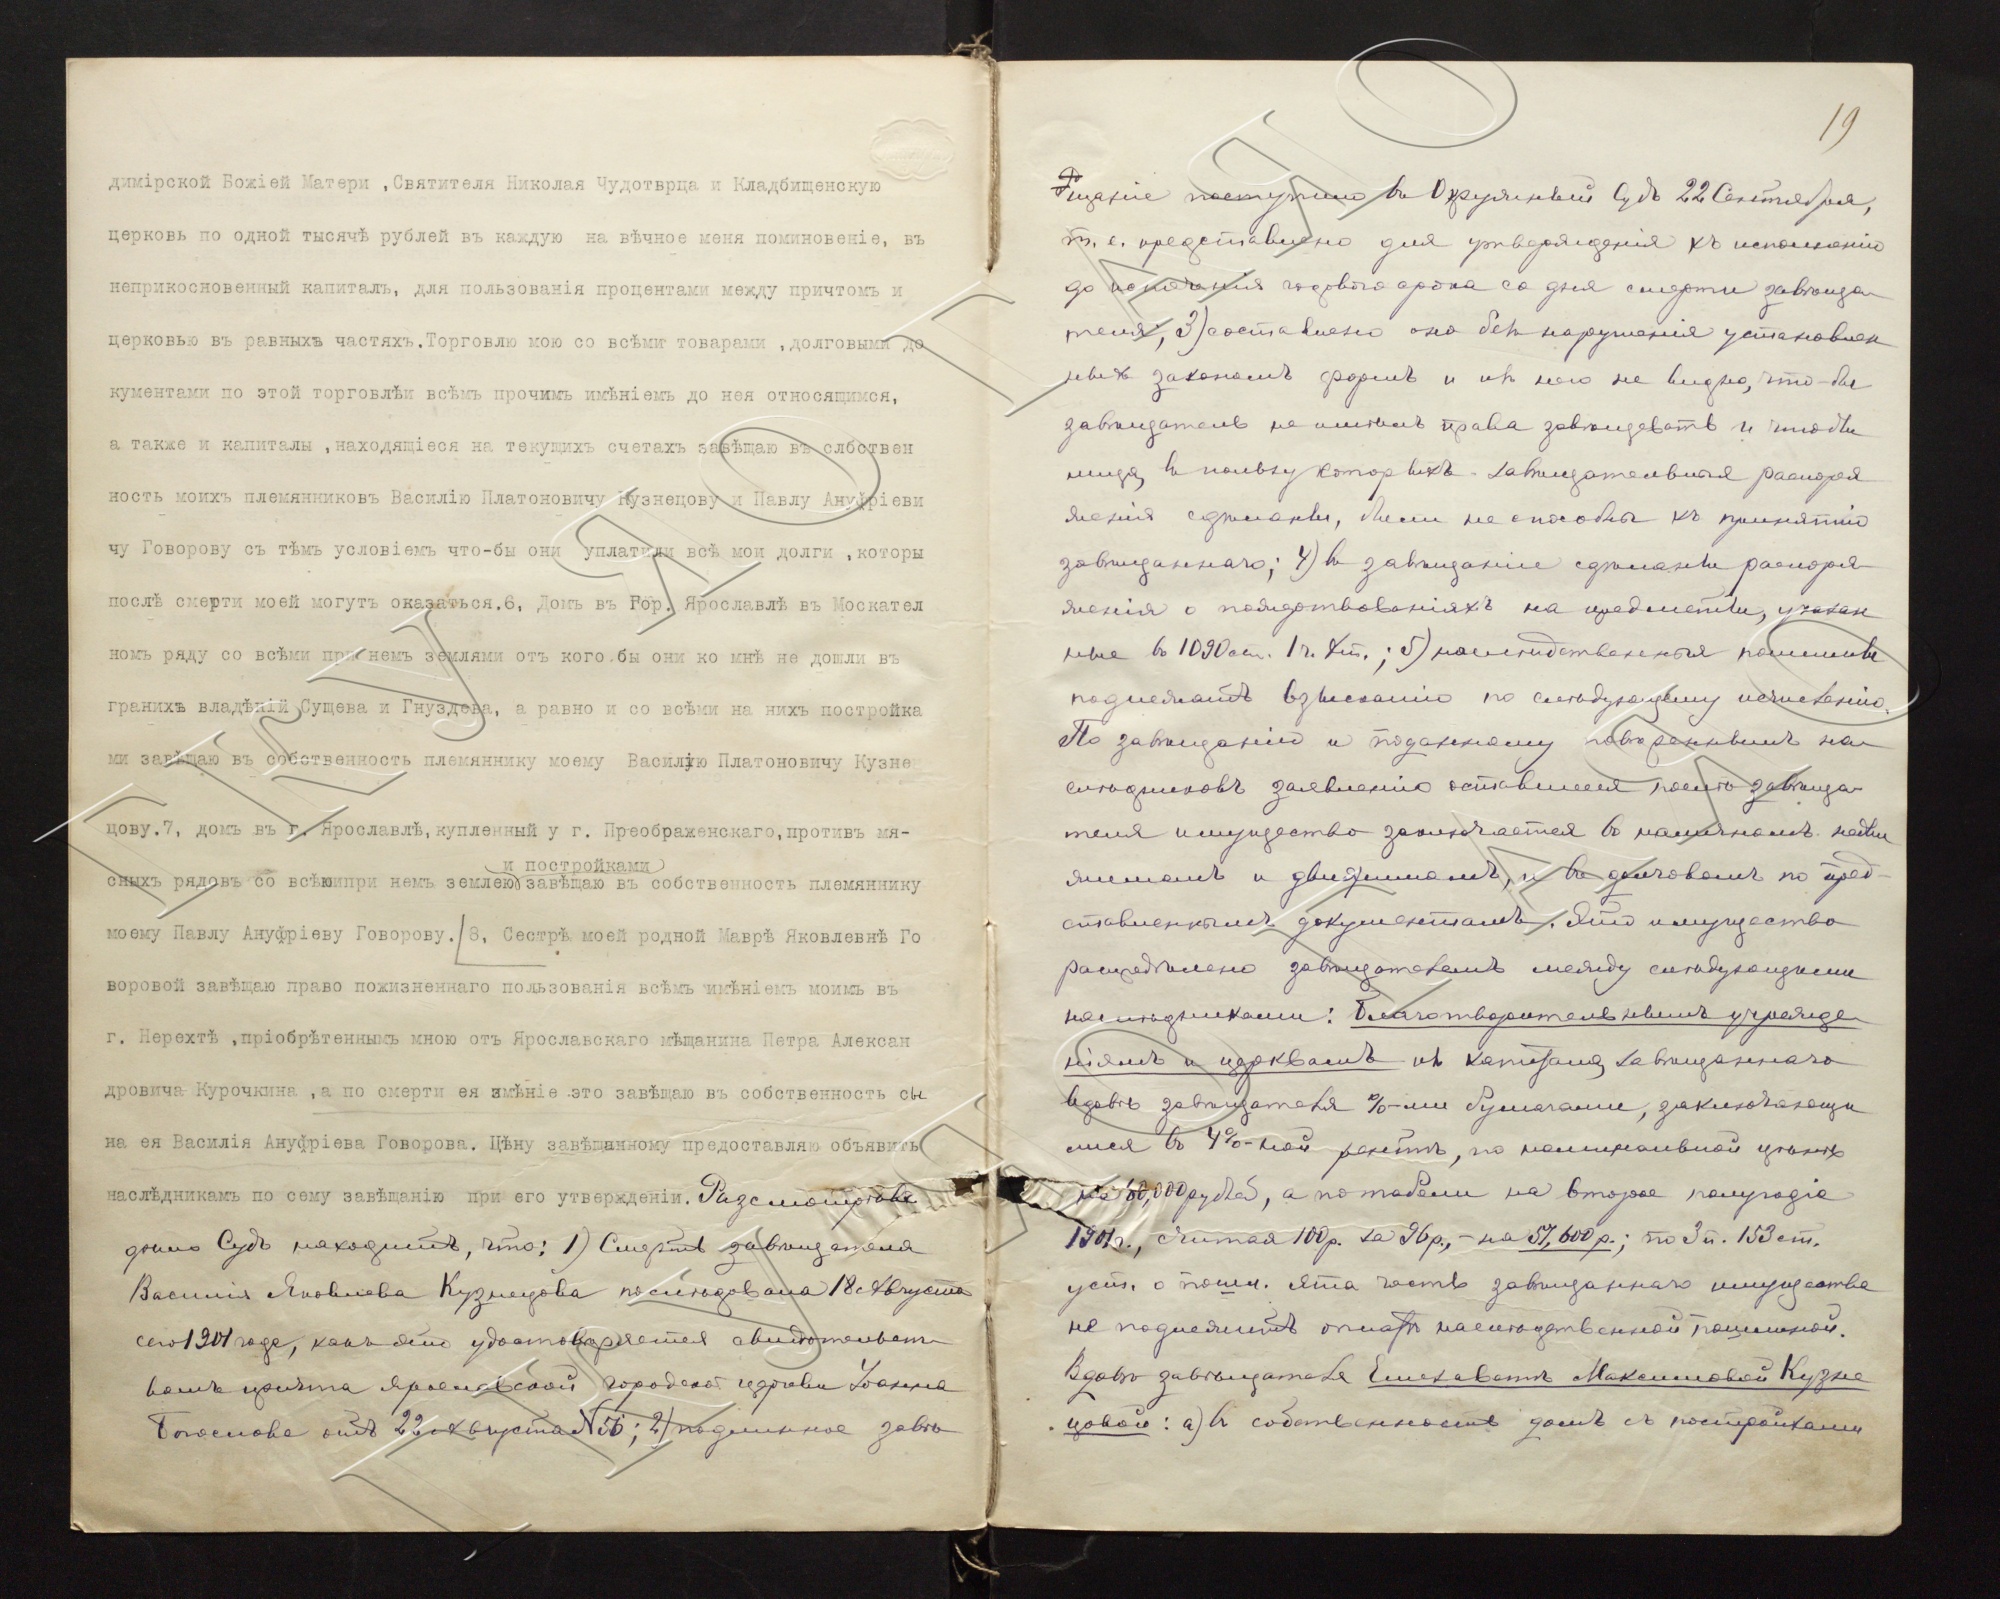 димірской Божіей Матери ,Святителя Николая Чудотврца и Кладбищенскую
церковь по одной тысячѣ рублей въ каждую на вѣчное меня поминовеніе, въ
неприкосновенный капиталъ, для пользованія процентами между причтомъ и
церковью въ равныхъ частяхъ.Торговлю мою со всѣми товарами ,долговыми до
кументами по этой торговлѣи всѣмъ прочимъ имѣніемъ до нея относящимся,
а также и капиталы ,находящіеся на текущихъ счетахъ завѣщаю въ слбствен
ность моихъ племянниковъ Василію Платоновичу Кузнецову и Павлу Ануфріеви
чу Говорову съ тѣмъ условіемъ что-бы они уплатили всѣ мои долги ,которы
послѣ смерти моей могутъ оказаться.6, Домъ въ Гор. Ярославлѣ въ Москател
номъ ряду со всѣми при немъ землями отъ кого бы они ко мнѣ не дошли въ
граняхъ владѣній Сущева и Гнуздева, а равно и со всѣми на нихъ постройка
ми завѣщаю въ собственность племяннику моему Василію Платоновичу Кузне
цову.7, домъ въ г. Ярославлѣ,купленный у г. Преображенскаго,противъ мя-
и постройками
сныхъ рядовъ со всѣюпри немъ землею завѣщаю въ собственность племяннику
моему Павлу Ануфріеву Говорову. 8, Сестрѣ моей родной Маврѣ Яковлевнѣ Го
воровой завѣщаю право пожизненнаго пользованія всѣмъ имѣніемъ моимъ въ
г. Нерехтѣ ,пріобрѣтеннымъ мною отъ Ярославскаго мѣщанина Петра Алексан
дровича Курочкина ,а по смерти ея имѣніе это завѣщаю въ собственность сы
на ея Василія Ануфріева Говорова. Цѣну завѣщанному предоставляю объявить
наслѣдникамъ по сему завѣщанію при его утвержденіи. Разсмотрѣвъ
дѣло Судъ находитъ, что: 1) Смерть завѣщателя
Василія Яковлева Кузнецова послѣдовала 18 Августа
сего 1901 года, какъ это удостовѣряется свидѣтельст
вомъ причта Ярославской городской церкви Іоанна
Богослова отъ 22 Августа №; 2) подлинное завѣ
19
щаніе поступило въ Окружный Судъ 22 Сентября,
т. е. представлено для утвержденія къ исполненію
до истеченія годового срока со дня смерти завѣща
теля; 3) составлено оно безъ нарушенія установлен
ныхъ закономъ формъ и изъ него не видно, что-бы
завѣщатель не имѣлъ права завѣщевать и чтобы
лица, въ пользу которыхъ завѣщательныя распоря
женія сдѣланы, были неспособны къ принятію
завѣщаннаго; 4) въ завѣщаніи сдѣланы распоря
женія о пожертвованіяхъ на предметы, указан
ные въ 1090 ст. 1 ч. Х т.; 5) наслѣдственныя пошлины
подлежатъ взысканію по слѣдующему исчисленію.
По завѣщанію и поданному повѣреннымъ на
слѣдниковъ заявленію оставшееся послѣ завѣща
теля имущество заключается въ наличномъ недви
жимомъ и движимомъ, и въ долговомъ по пред-
ставленнымъ документамъ. Это имущество
распредѣлено завѣщателемъ между слѣдующими
наслѣдниками: Благотворительнымъ учрежде
ніямъ и церквамъ изъ капитала, завѣщаннаго
вдовѣ завѣщателя %-ми бумагами, заключающи
мися въ 4%-ной рентѣ, по номинальной цѣнѣ
на 60,000 рублей, а по табели на второе полугодіе
1901 г., считая 100 р. за 96 р.,- на 57,600 р.; по 3 п. 153 ст.
уст. о пошл. эта часть завѣщаннаго имущества
не подлежитъ оплатѣ наслѣдственной пошлиной.
Вдовѣ завѣщателя Елизаветѣ Максимовой Кузне
цовой: а) въ собственность домъ съ постройками